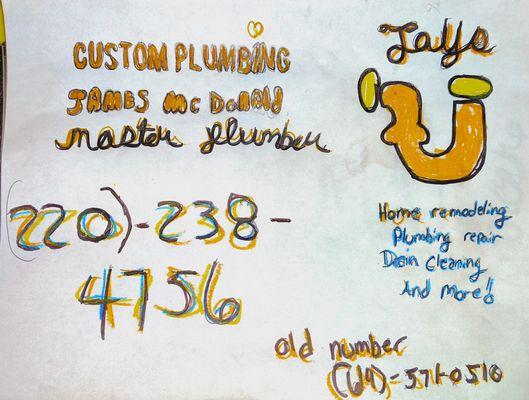 CUSTOM PLUMBING
JAMES McDonald
master plumber
(220)-238-
4756
Jays
Home remodeling
Plumbing repair
Drain Cleaning
And more!!
old number
(614)-571-0510